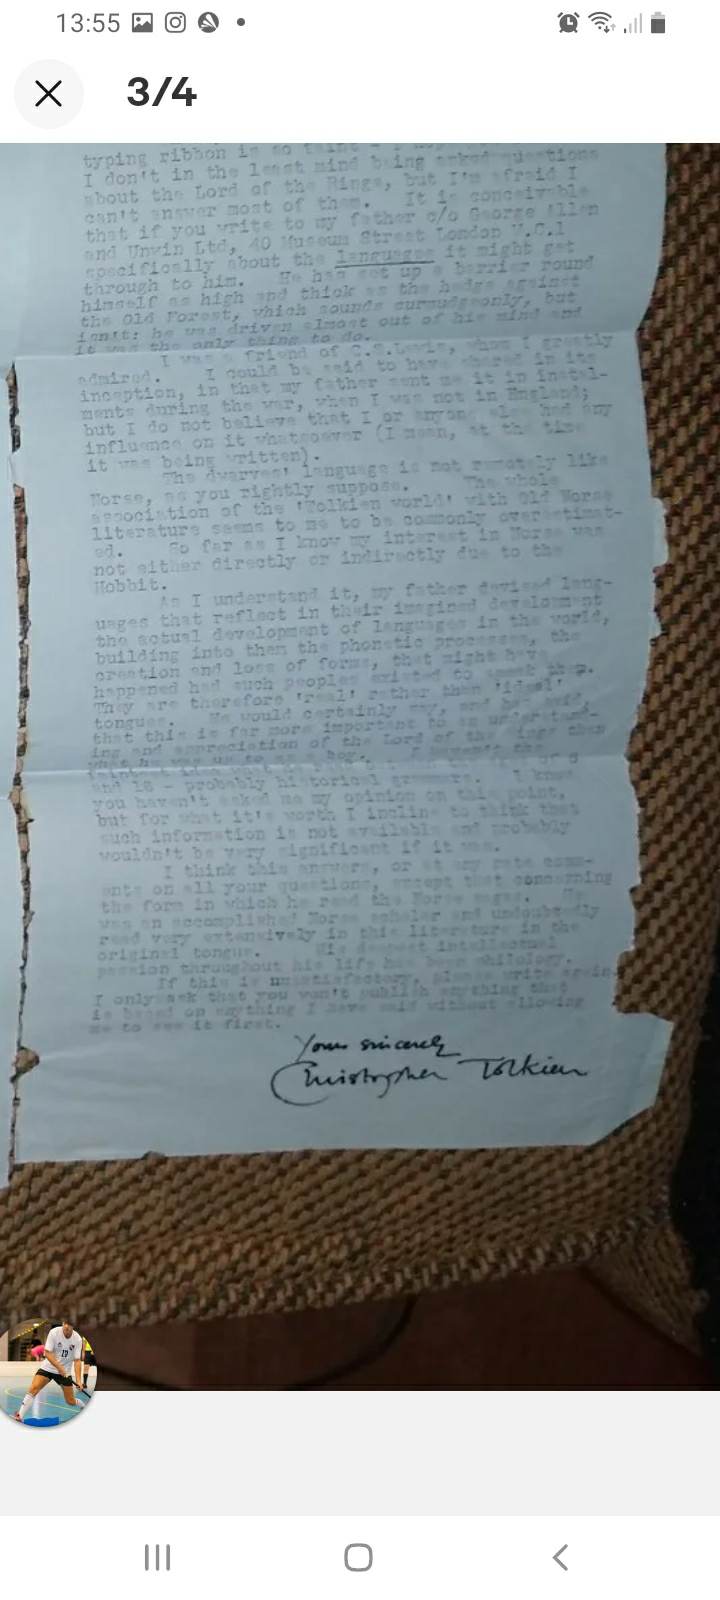 13:55
3/4
typing ribbon is so faint - I
I don't in the least mind being asked questions
about the Lord of the Rings, but I'm afraid I
can't answer most of them. It is conceivable
that if you write to my father c/o George Allen
and Unwin Ltd, 40 Museum Street London W.C.1
specifically about the languages it might get
through to him. He has set up a barrier round
himself as high and thick as the hedge against
the Old Forest, which sounds curmudgeonly, but
isn't: he was driven almost out of his mind and
it was the only thing to do.
I was a friend of C.S.Lewis, whom I greatly
admired. I could be said to have shared in its
inception, in that my father sent me it in instal-
ments during the war, when I was not in England;
but I do not believe that I or anyone else had any
influence on it whatsoever (I mean, at the time
it was being written).
The dwarves' language is not remotely like
Norse, as you rightly suppose. The whole
association of the 'Tolkien world' with Old Norse
literature seems to me to be commonly overestimat-
ed. So far as I know my interest in Norse was
not either directly or indirectly due to the
Hobbit.
As I understand it, my father devised lang-
uages that reflect in their imagined development
the actual development of languages in the world,
building into them the phonetic processes, the
creation and loss of forms, that might have
happened had such peoples existed to speak them.
They are therefore 'real' rather than 'ideal'
tongues. He would certainly say, and has said,
that this is far more important to an understand-
ing and appreciation of the Lord of the Rings than
what he was up to as a boy.
and 18 - probably historical grammars. I know
you haven't asked me my opinion on this point,
but for what it's worth I incline to think that
such information is not available and probably
wouldn't be very significant if it was.
I think this answers, or at any rate comm-
ents on all your questions, except that concerning
the form in which he read the Norse sagas. He
was an accomplished Norse scholar and undoubtedly
read very extensively in this literature in the
original tongue. His deepest intellectual
passion throughout his life has been philology.
If this is unsatisfactory, please write again.
I only ask that you won't publish anything that
is based on anything I have said without allowing
me to see it first.
Yours sincerely
Christopher Tolkien